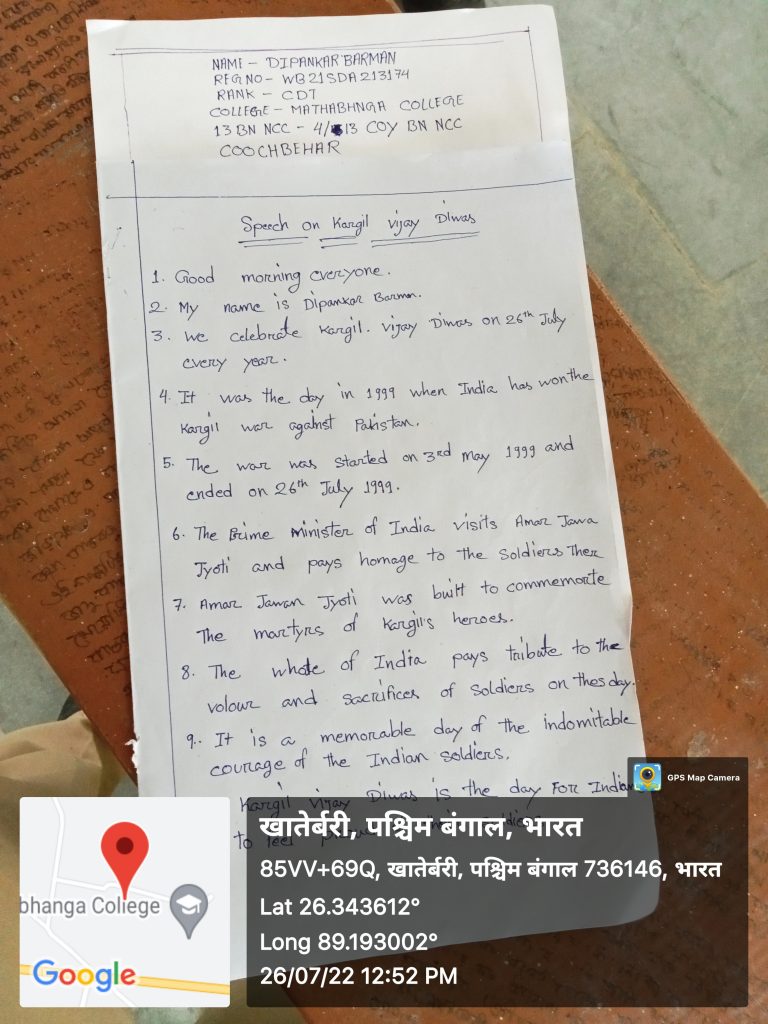 NAME - DIPANKAR BARMAN
REG NO - WB21SDA213174
RANK - CDT
COLLEGE - MATHABHNGA COLLEGE
13 BN NCC - 4/13 COY BN NCC
COOCHBEHAR
Speech on Kargil Vijay Diwas
1. Good morning everyone.
2. My name is Dipankar Barman.
3. We celebrate Kargil. Vijay Diwas on 26th July
every year.
4. It was the day in 1999 when India has won the
Kargil war against Pakistan.
5. The war was started on 3rd may 1999 and
ended on 26th July 1999.
6. The Prime Minister of India visits Amar Jawa
Jyoti and pays homage to the soldiers Ther
7. Amar Jawan Jyoti was built to commemorte
The martyrs of Kargil's heroes.
8. The whole of India pays tribute to the
volour and sacrifices of soldiers on thes day.
9. It is a memorable day of the indomitable
courage of the Indian soldiers.
Kargil Vijay Diwas is the day For Indian
to feel
GPS Map Camera
खातेर्बरी, पश्चिम बंगाल, भारत
85VV+69Q, खातेर्बरी, पश्चिम बंगाल 736146, भारत
Lat 26.343612°
Long 89.193002°
26/07/22 12:52 PM
bhanga College
Google